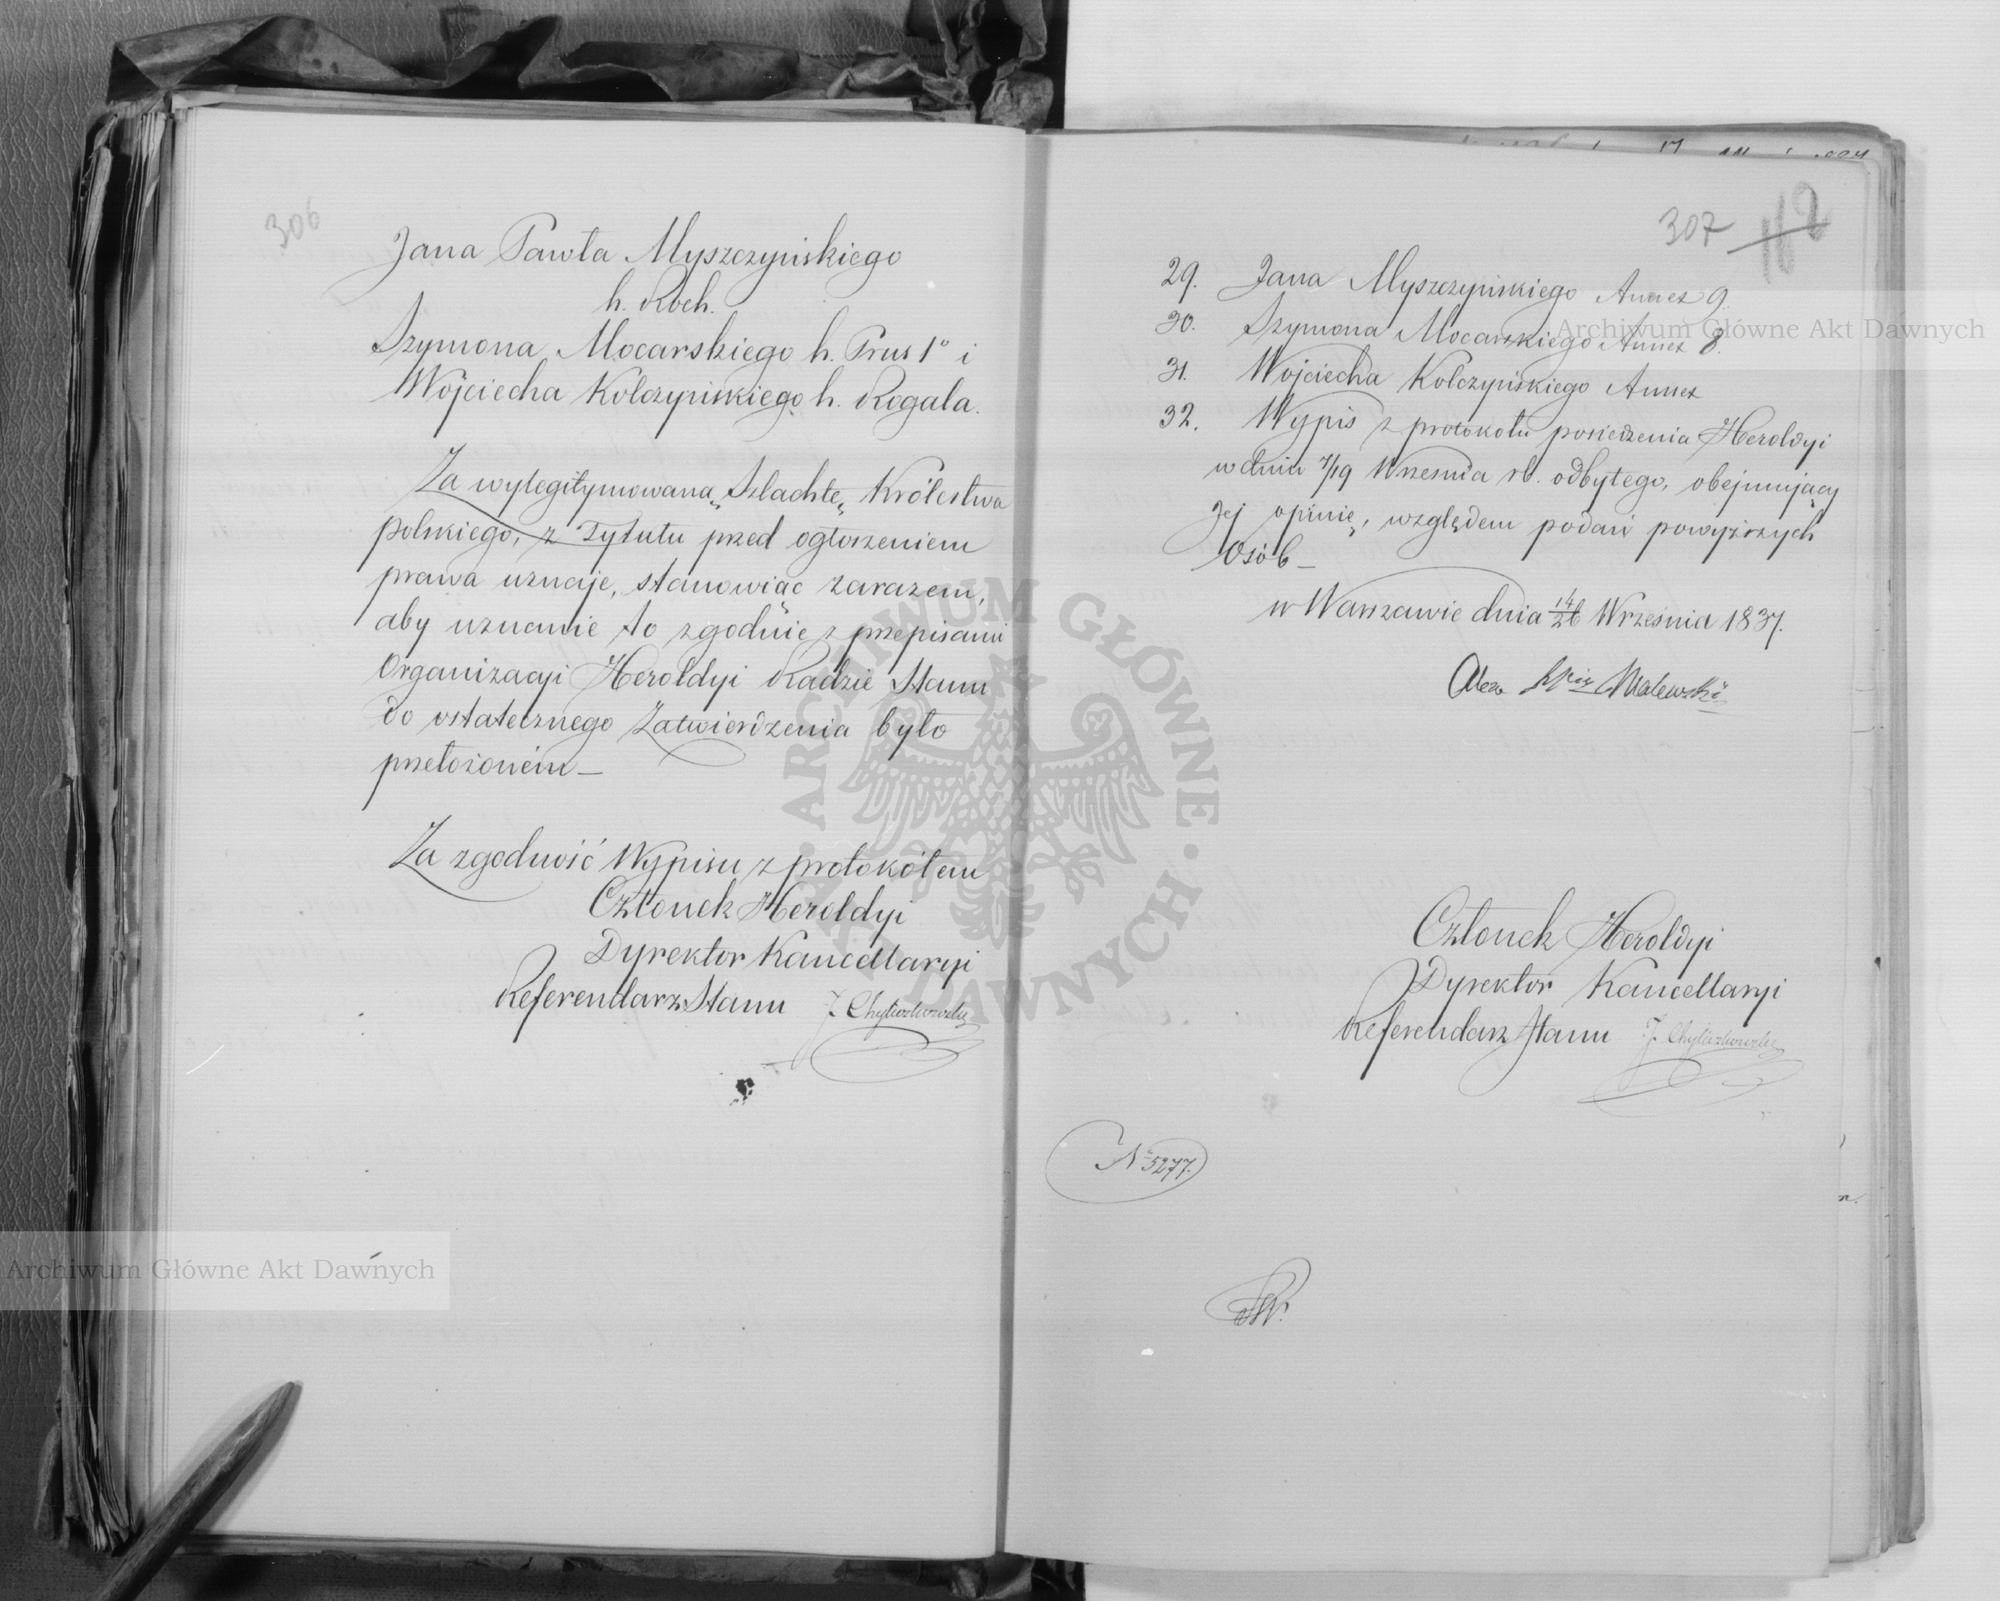 306
Jana Pawła Myszczyńskiego
h. Roch.
Szymona Mocarskiego h. Prus 1° i
Wojciecha Kólczyńskiego h. Rogala.
Za wylegitymowaną Szlachtę Królestwa
polskiego, z Tytułu przed ogłoszeniem
prawa uznaje, stanowiąc zarazem,
aby uznanie to zgodnie z przepisami
Organizacyi Heroldyi Radzie Stanu
do ostatecznego Zatwierdzenia było
przełożoném —
Za zgodność Wypisu z protokółem
Członek Heroldyi
Dyrektor Kancellaryi
Referendarz Stanu J. Chyliczkowski
307
29. Jana Myszczyńskiego Annex 9.
30. Szymona Mocarskiego Annex 8.
31. Wojciecha Kolczyńskiego Annex
32. Wypis z protokołu posiedzenia Heroldyi
w dniu 7/19 Września rb. odbytego, obejmujący
Jej opinię, względem podań powyższych
Osób —
w Warszawie dnia 14/26 Września 1837.
Malewski
Członek Heroldyi
Dyrektor Kancellaryi
Referendarz Stanu J. Chyliczkowski
N° 5277.
Archiwum Główne Akt Dawnych
Archiwum Główne Akt Dawnych
ARCHIWUM GŁÓWNE AKT DAWNYCH